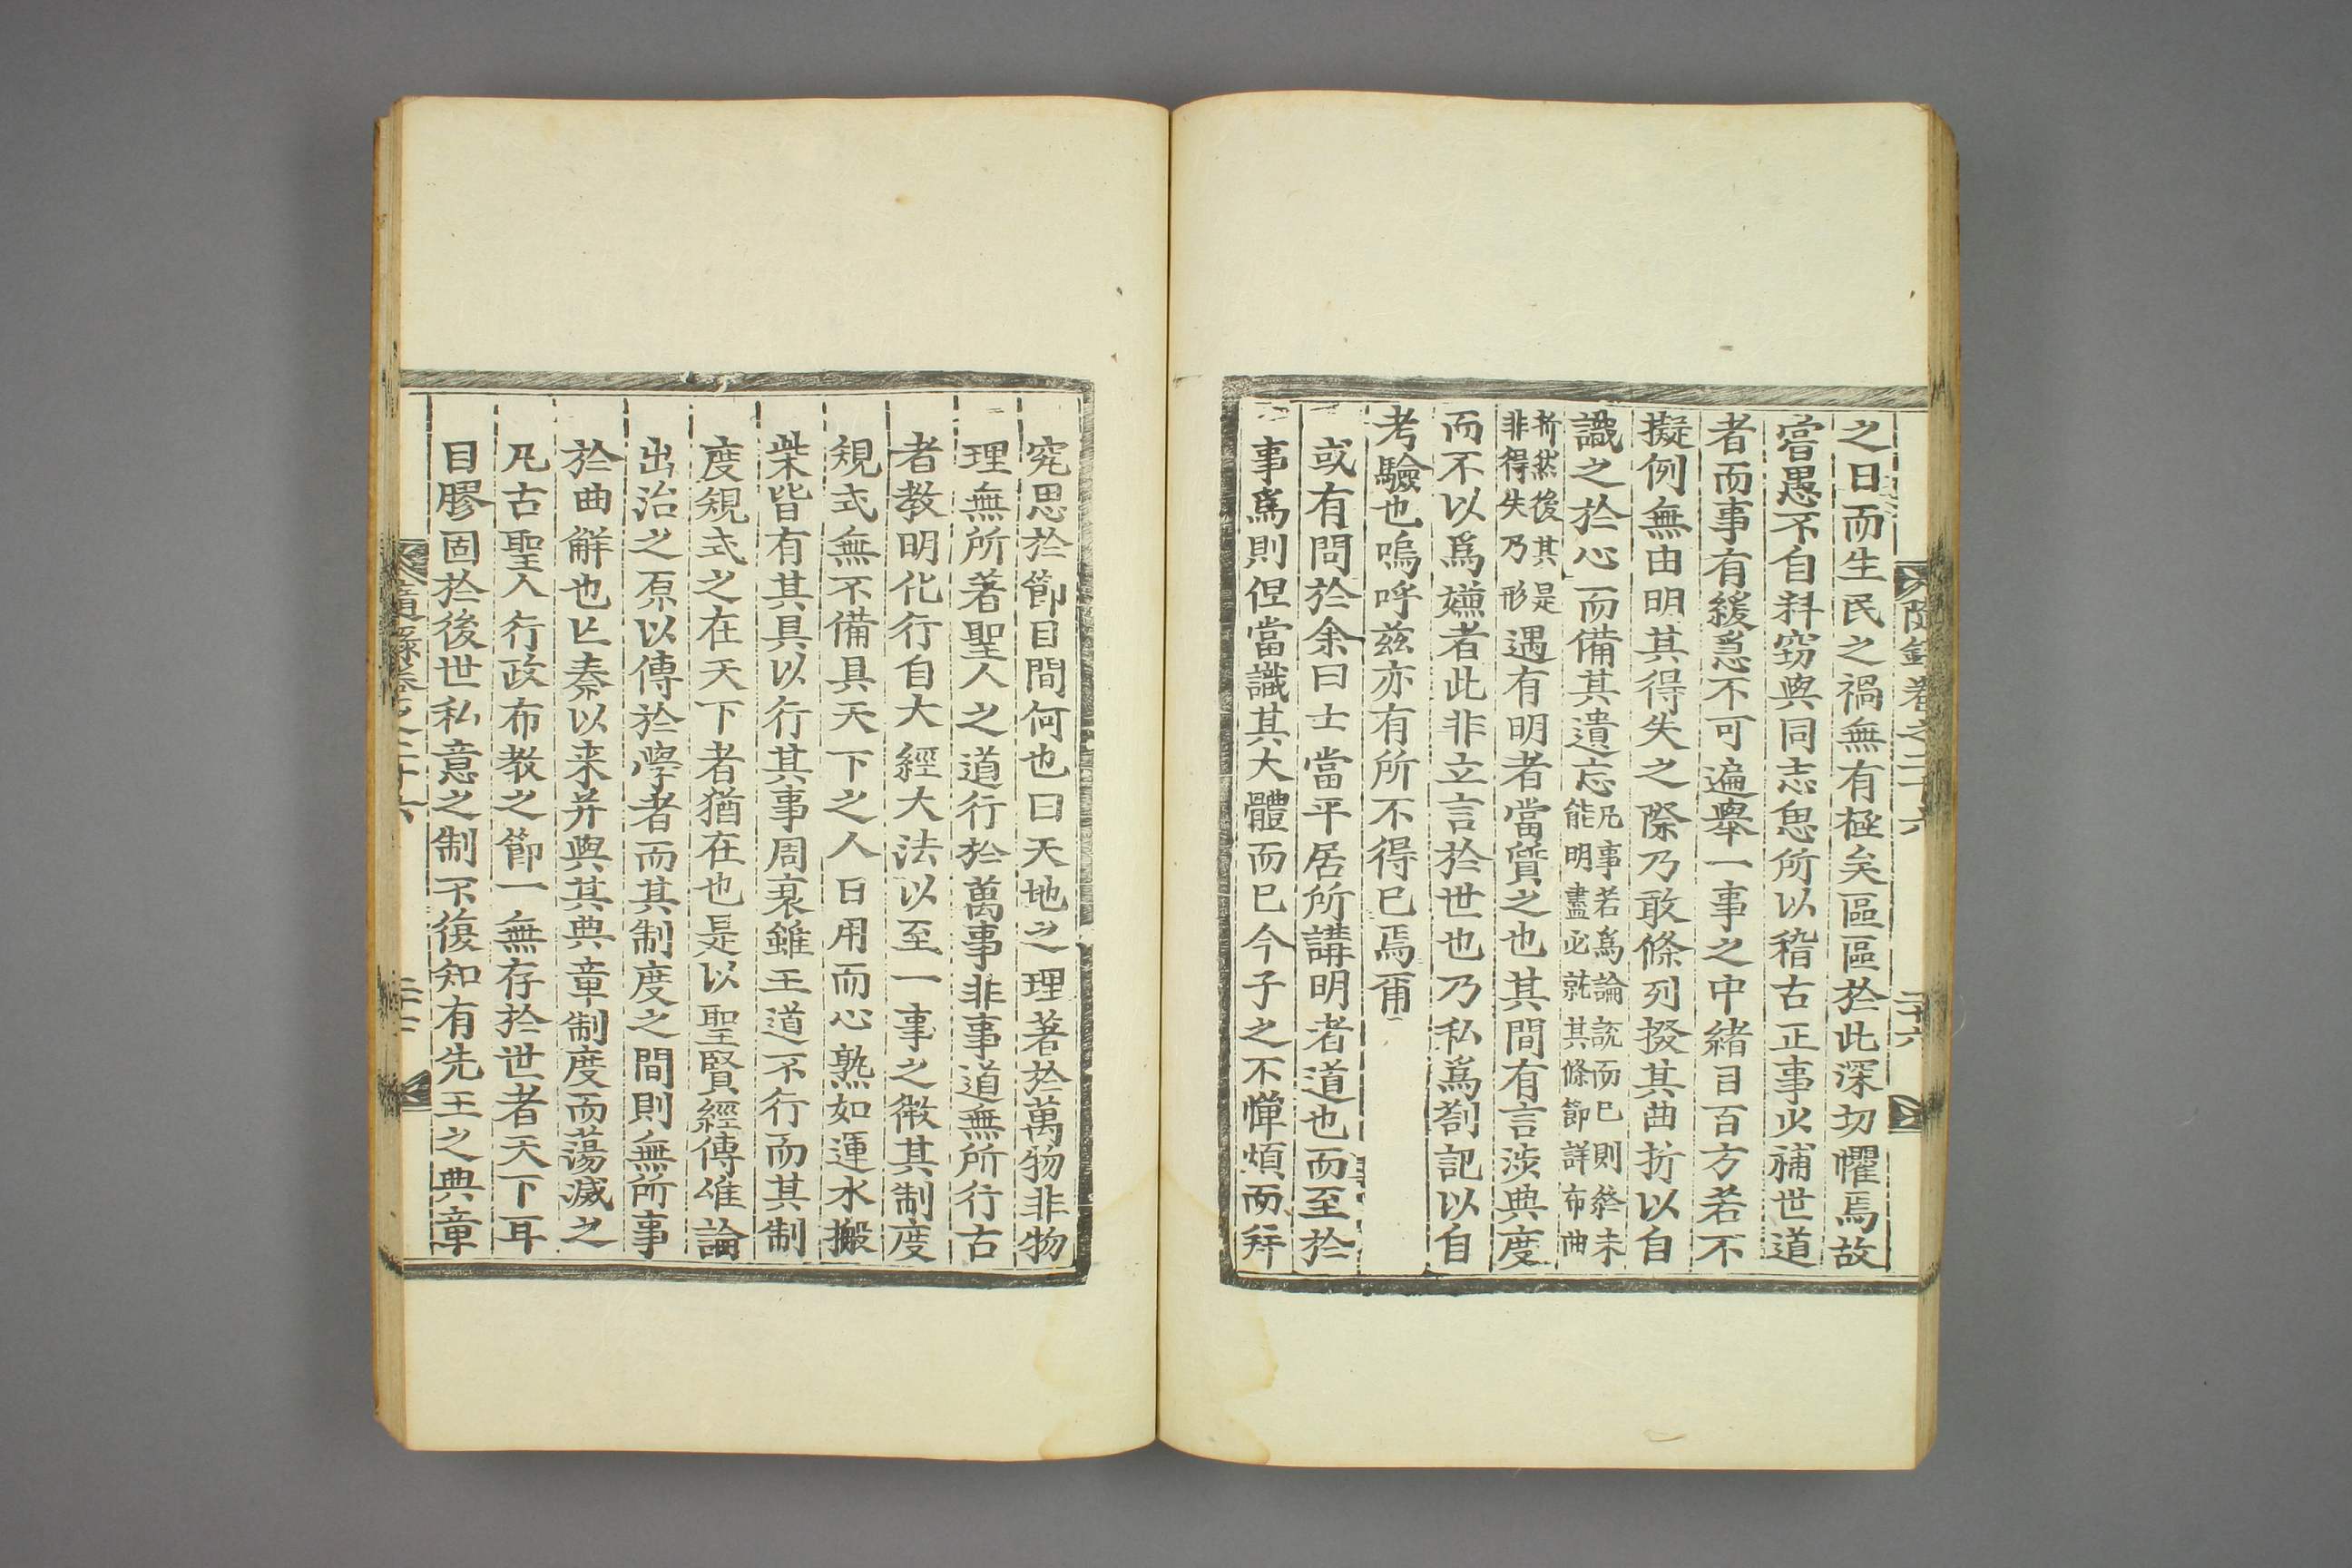 隨錄卷之二十六 二十六
之日而生民之禍無有極矣區區於此深切懼焉故
嘗愚不自料竊與同志思所以稽古正事少補世道
者而事有緩急不可遍擧一事之中緖目百方若不
擬例無由明其得失之際乃敢條列掇其曲折以自
識之於心而備其遺忘凡事若爲論説而已則終未能明盡必就其條節詳布曲
折然後其是非得失乃形遇有明者當質之也其間有言涉典度
而不以爲嫌者此非立言於世也乃私爲劄記以自
考驗也嗚呼茲亦有所不得已焉爾
或有問於余曰士當平居所講明者道也而至於
事爲則但當識其大體而已今子之不憚煩而幷
究思於節目間何也曰天地之理著於萬物非物
理無所著聖人之道行於萬事非事道無所行古
者教明化行自大經大法以至一事之微其制度
規式無不備具天下之人日用而心熟如運水搬
柴皆有其具以行其事周衰雖王道不行而其制
度規式之在天下者猶在也是以聖賢經傳唯論
出治之原以傳於學者而其制度之間則無所事
於曲解也亡秦以来并與其典章制度而蕩滅之
凡古聖人行政布教之節一無存於世者天下耳
目膠固於後世私意之制不復知有先王之典章